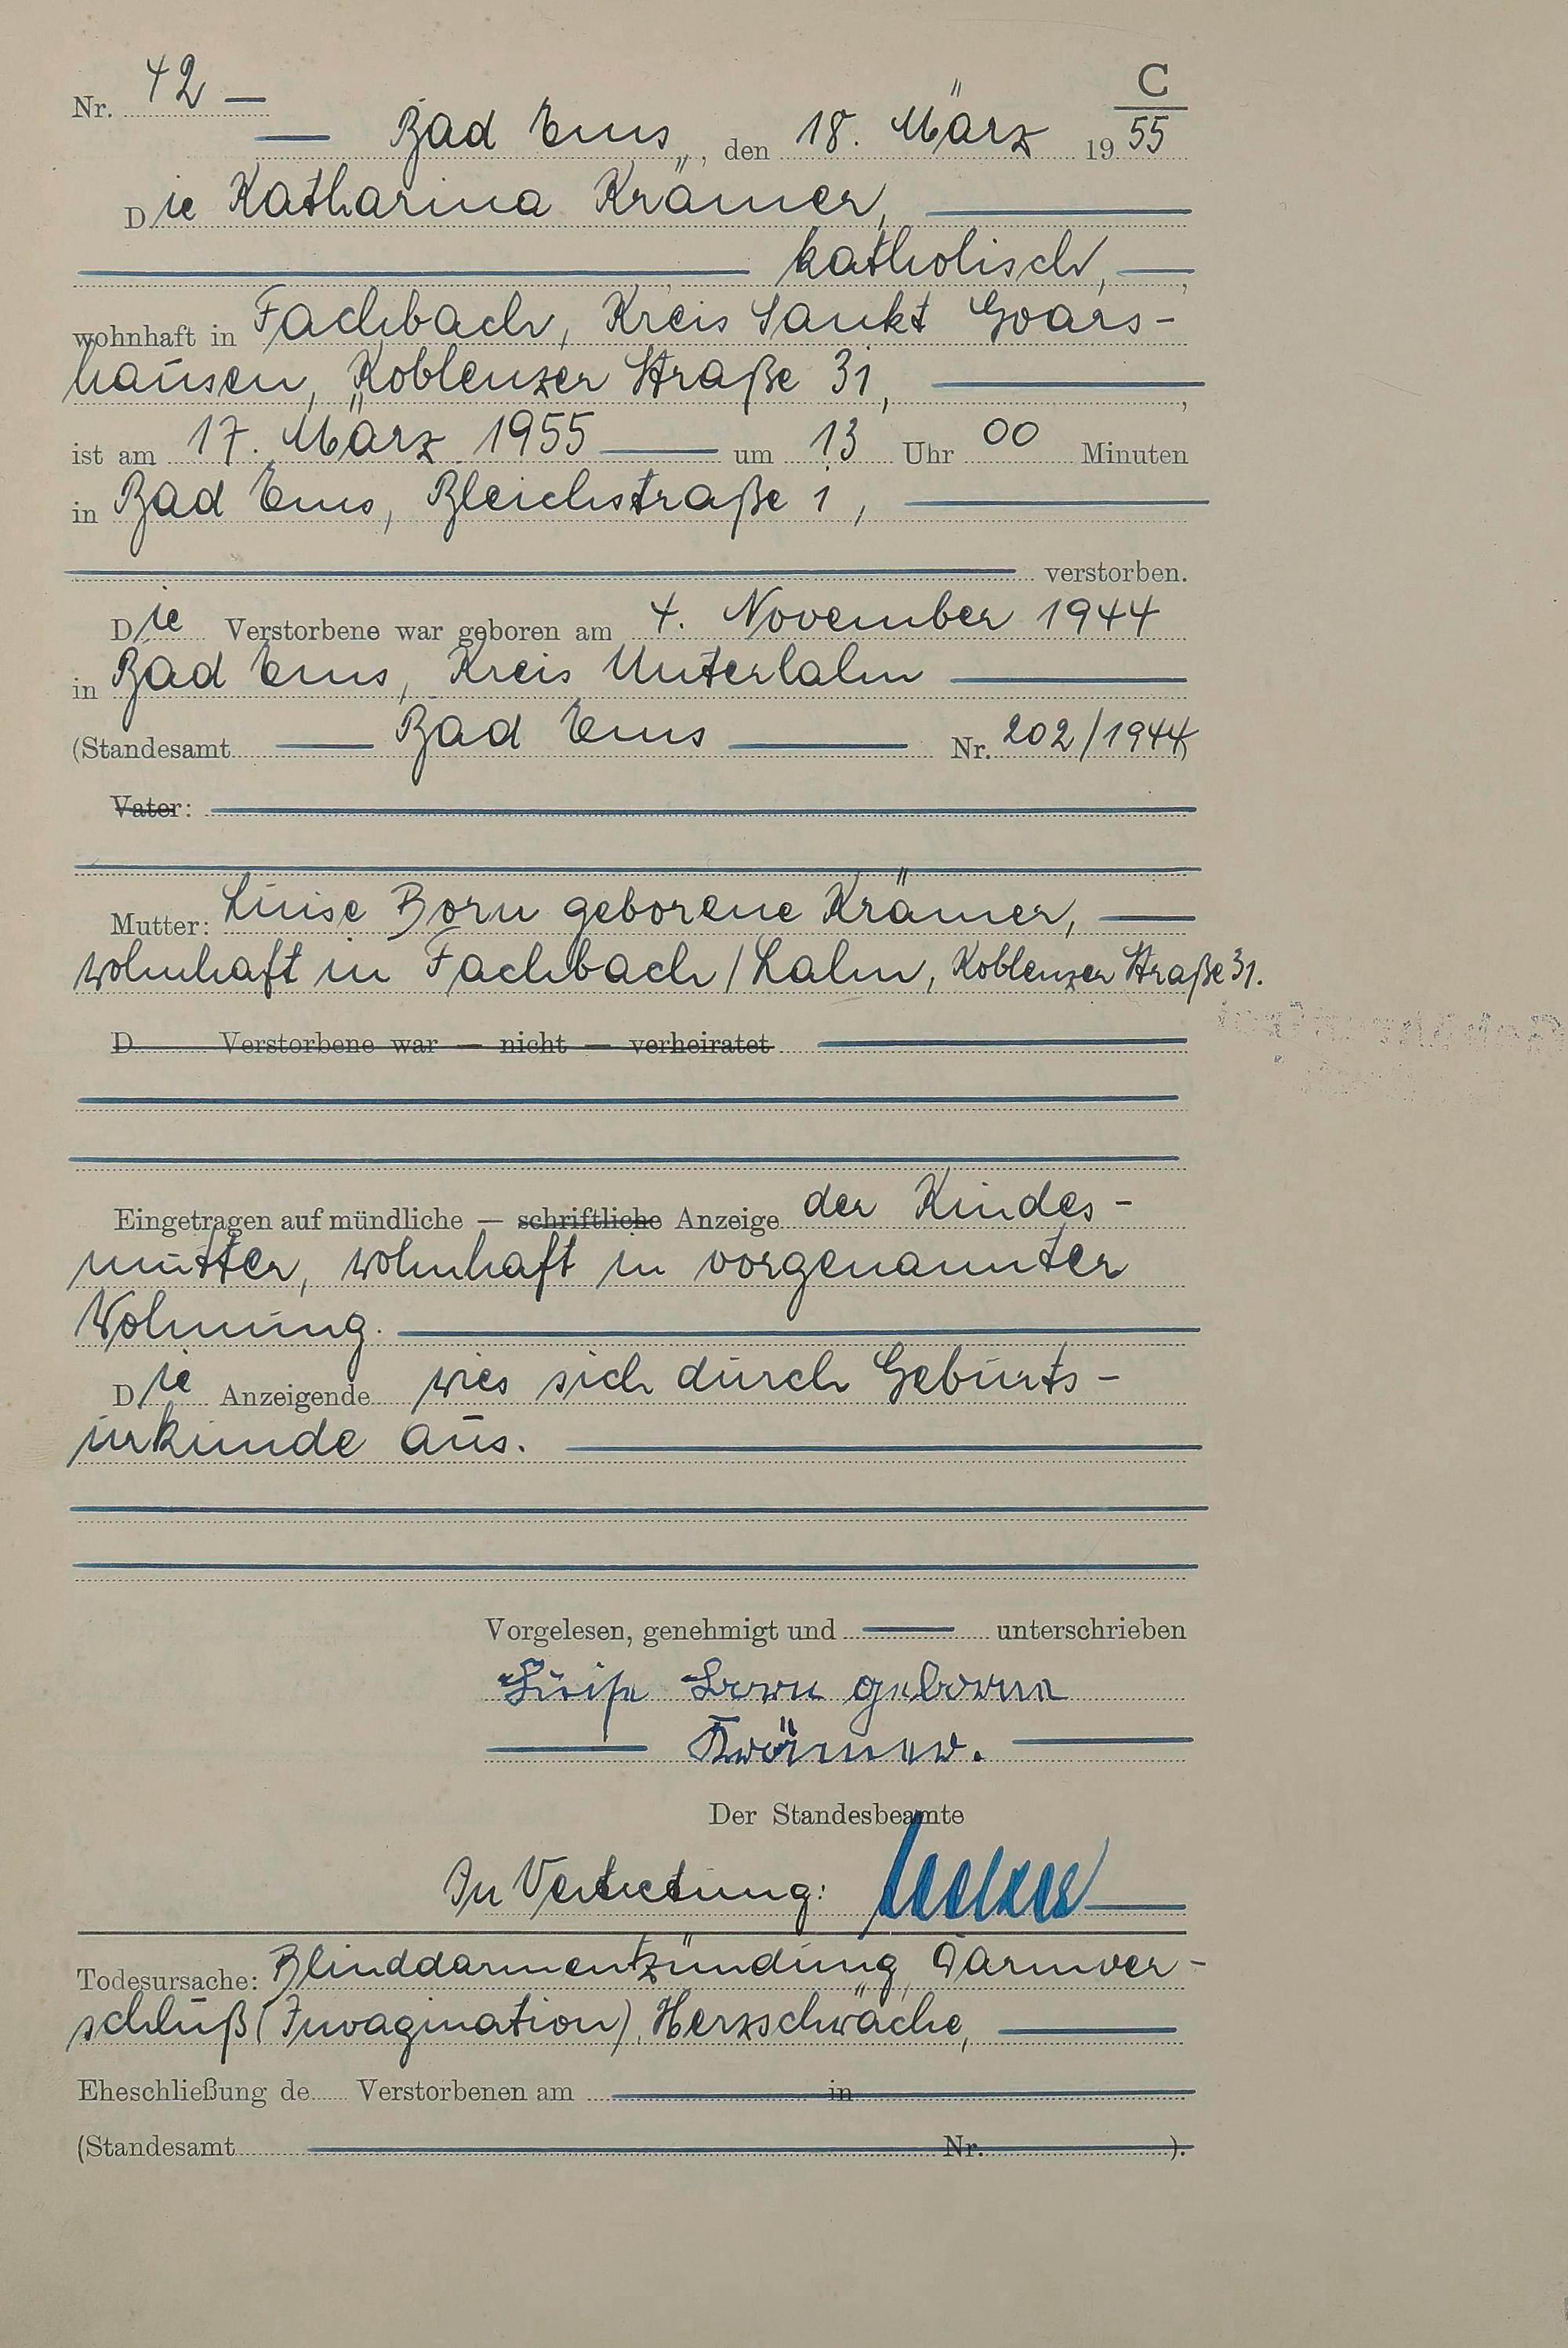 C
Nr. 42
Bad Ems, den 18. März 1955
Die Katharina Krämer,
katholisch,
wohnhaft in Fachbach, Kreis Sankt Goars-
hausen, Koblenzer Straße 31,
ist am 17. März 1955 um 13 Uhr 00 Minuten
in Bad Ems, Bleichstraße 1,
verstorben.
Die Verstorbene war geboren am 4. November 1944
in Bad Ems, Kreis Unterlahn
(Standesamt Bad Ems Nr. 202/1944)
Vater:
Mutter: Luise Born geborene Krämer,
wohnhaft in Fachbach/Lahn, Koblenzer Straße 31.
D Verstorbene war — nicht — verheiratet
Eingetragen auf mündliche — schriftliche Anzeige der Kindes-
mutter, wohnhaft in vorgenannter
Wohnung.
Die Anzeigende wies sich durch Geburts-
urkunde aus.
Vorgelesen, genehmigt und unterschrieben
Luise Born geborene
Krämer.
Der Standesbeamte
In Vertretung:
Todesursache: Blinddarmentzündung, Darmver-
schluß (Invagination), Herzschwäche,
Eheschließung de Verstorbenen am in
(Standesamt Nr. ).